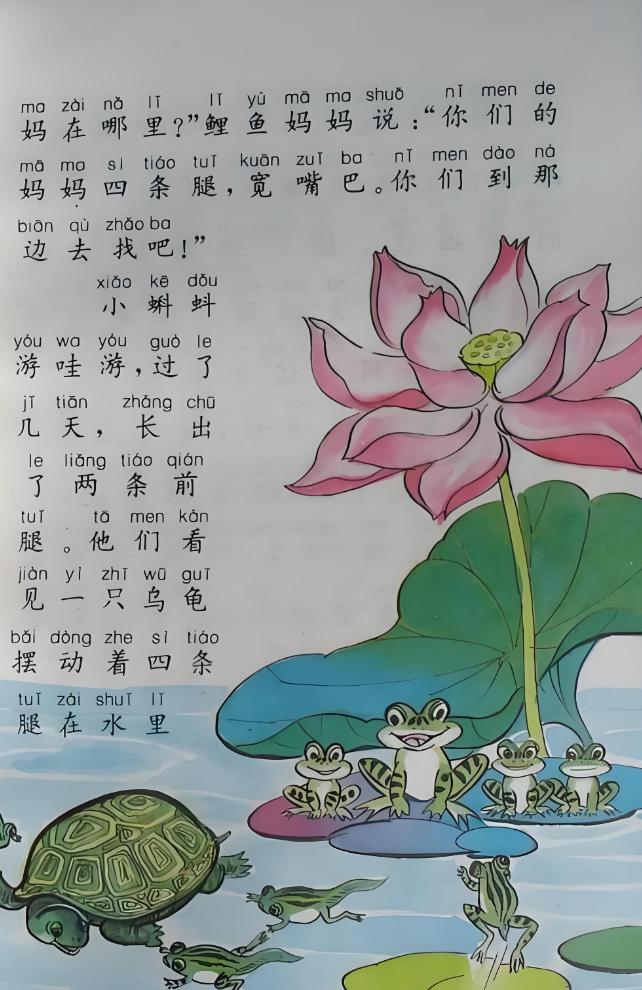 ma zài nǎ lǐ lǐ yú mā ma shuō nǐ men de
妈在哪里？”鲤鱼妈妈说：“你们的
mā ma sì tiáo tuǐ kuān zuǐ ba nǐ men dào nà
妈妈四条腿，宽嘴巴。你们到那
biān qù zhǎo ba
边去找吧！”
xiǎo kē dǒu
小蝌蚪
yóu wa yóu guò le
游哇游，过了
jǐ tiān zhǎng chū
几天，长出
le liǎng tiáo qián
了两条前
tuǐ tā men kàn
腿。他们看
jiàn yì zhī wū guī
见一只乌龟
bǎi dòng zhe sì tiáo
摆动着四条
tuǐ zài shuǐ lǐ
腿在水里